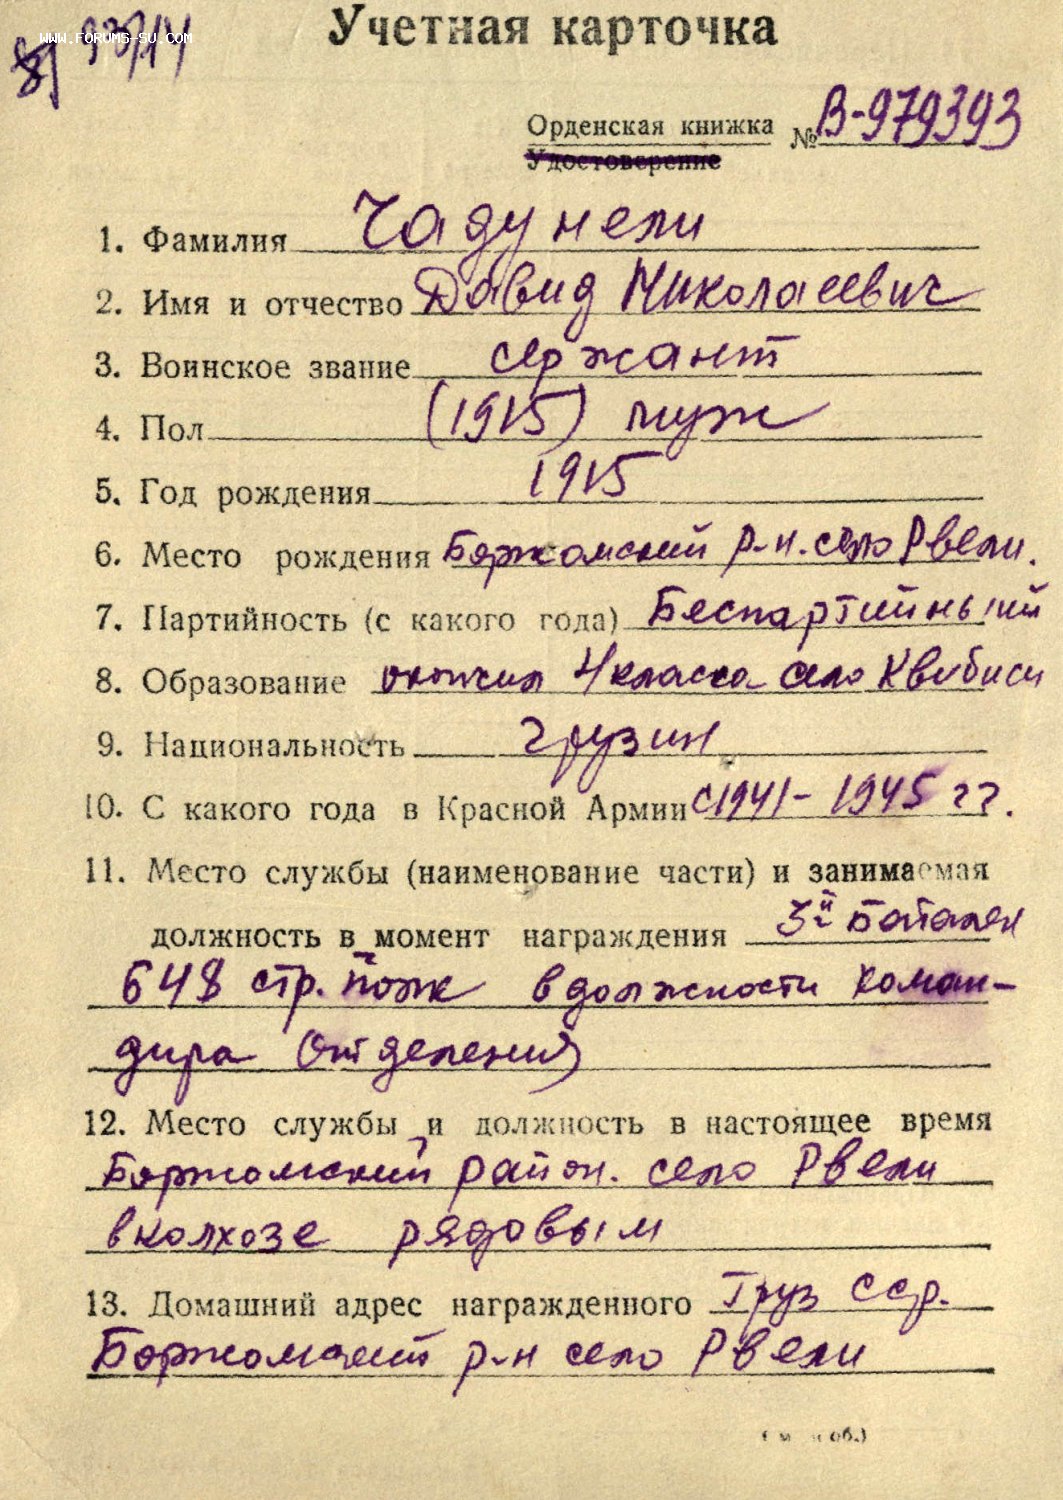 WWW.FORUMS-SU.COM
Учетная карточка
Орденская книжка № В-979393
Удостоверение
1. Фамилия Чадунели
2. Имя и отчество Давид Николаевич
3. Воинское звание сержант
4. Пол (1915) муж
5. Год рождения 1915
6. Место рождения Боржомский р-н. село Рвели.
7. Партийность (с какого года) Беспартийный
8. Образование окончил 4 класса село Квибиси
9. Национальность грузин
10. С какого года в Красной Армии с 1941 - 1945 гг.
11. Место службы (наименование части) и занимаемая
должность в момент награждения 3й батален
648 стр. полк в должности коман-
дира отделения
12. Место службы и должность в настоящее время
Боржомский район. село Рвели
в колхозе рядовым
13. Домашний адрес награжденного Груз ССР.
р-н село Рвели
об.)